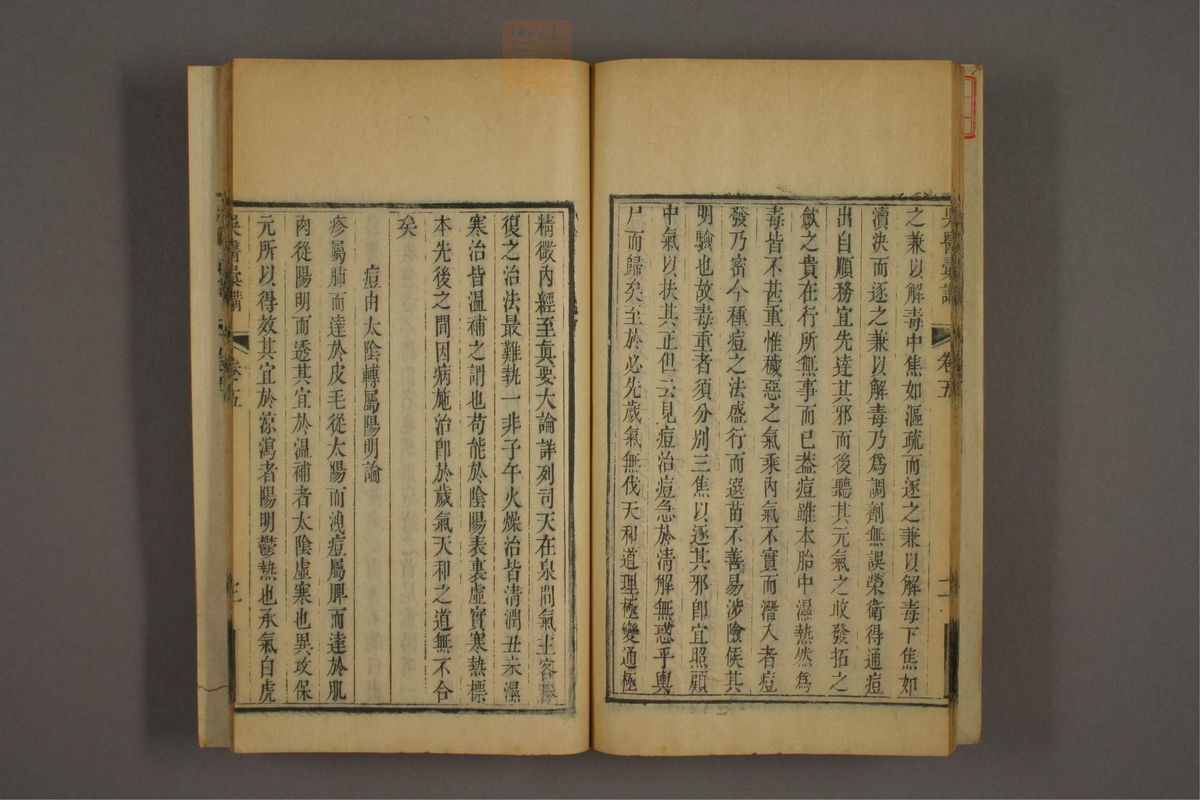 吳醫彙講 卷五 二
之兼以解毒中焦如漚疏而逐之兼以解毒下焦如
瀆決而逐之兼以解毒乃爲調劑無誤榮衛得通痘
出自順務宜先達其邪而後聽其元氣之收發拓之
斂之貴在行所無事而已蓋痘雖本胎中濕熱然爲
毒皆不甚重惟穢惡之氣乘內氣不實而潛入者痘
發乃密今種痘之法盛行而選苗不善易涉險候其
明驗也故毒重者須分別三焦以逐其邪卽宜照顧
中氣以扶其正但云見痘治痘急於淸解無惑乎輿
尸而歸矣至於必先歲氣無伐天和道理極變通極
精微內經至眞要大論詳列司天在泉間氣主客勝
復之治法最難執一非子午火燥治皆淸潤丑未濕
寒治皆溫補之謂也苟能於陰陽表裏虛實寒熱標
本先後之間因病施治卽於歲氣天和之道無不合
矣
痘由太陰轉屬陽明論
疹屬肺而達於皮毛從太陽而洩痘屬脾而達於肌
肉從陽明而透其宜於溫補者太陰虛寒也異攻保
元所以得效其宜於涼瀉者陽明鬱熱也承氣白虎
吳醫彙講 卷五 三